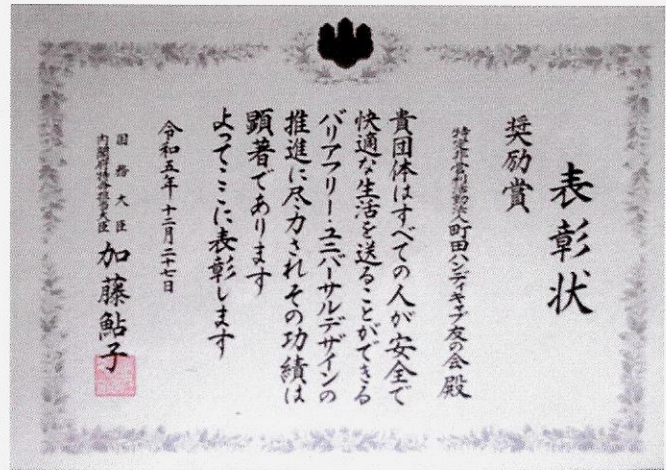 表彰状
奨励賞
特定非営利活動法人町田ハンディキャブ友の会殿
貴団体はすべての人が安全で
快適な生活を送ることができる
バリアフリー・ユニバーサルデザインの
推進に尽力されその功績は
顕著であります
よってここに表彰します
令和五年十二月二十七日
国務大臣
内閣府特命担当大臣
加藤鮎子